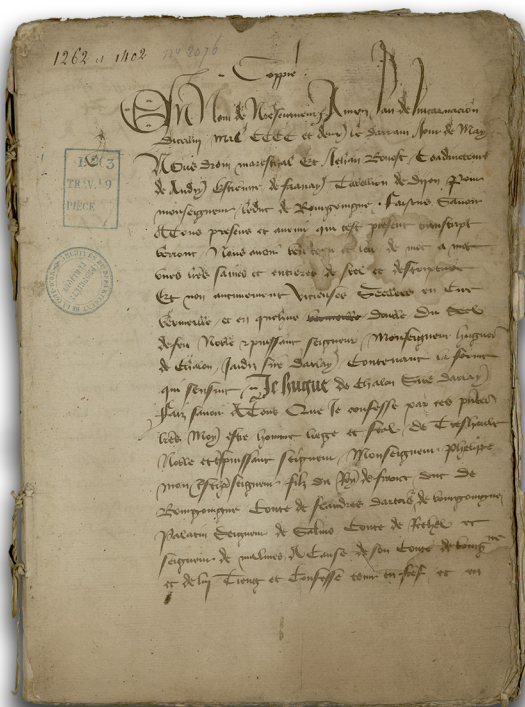 1262 et 1402 nº 2076
Coppie
En Nom de Nostreseigneur Amen lan de lincarnacion
dicelluy Mil CCCC et deux le darrain Jour de May
Nous Droin mareschal Et Jehan Bonost Coadiuteur
de Andry Estienne de Tabellion de Dijon Pour
monseigneur leduc de Bourgoingne . Faisons Sauoir
A Tous presens et auenir qui cest present transcript
verront Nous auons veu tenu et leu de mot a mot
unes lettres saines et entieres de seel et descripture
Et non aucunement viciees Seellees en Cire
vermeille et en quehue double du Seel
de feu Noble et puissant seigneur Monseigneur hugues
de Chalon Jadix sire darlay Contenant la forme
qui sensuit Je hugue de Chalon Sire darlay
Faiz sauoir A Tous Que Je confesse par ces presentes
lettres Moy estre homme liege et feal de Treshault
Noble et puissant seigneur Monseigneur Phelipe
mon seigneur filz du Roy de france duc de
Bourgoingne Conte de flandres dartois de bourgoingne
Palatin Seigneur de Salins Conte de Rethel et
seigneur de malines A Cause de son Conte de bourgne
et de luy Tieng et Confesse tenir en fief et en
123
TRAV. 9
PIECE
ARCHIVES DU DEPARTEMENT